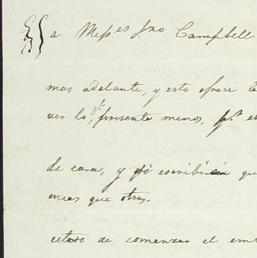 a Mess.es Jno Campbell
mas adelante, y esto ofrece la
ver lo presente menos.
de cara, y escribi qu
mas que otros.
de comenzar el em